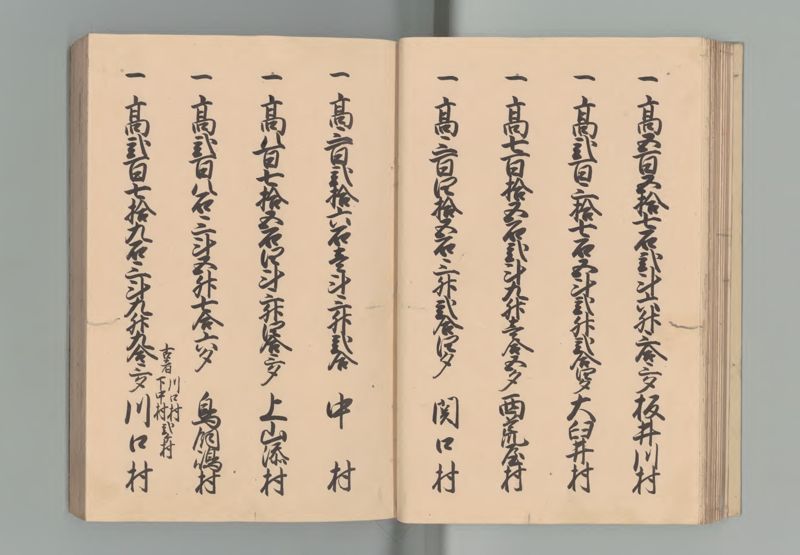 一 高五百五拾七石弐斗六升三合三夕 板井川村
一 高弐百三拾七石五斗弐升弐合四夕 大臼井村
一 高七百拾五石弐斗九升三合五夕 西荒屋村
一 高三百四拾五石三升弐合四夕 関口村
一 高三百弐拾六石壱斗三升弐合 中村
一 高八百七拾五石四斗三升四合三夕 上山添村
一 高弐百八石三斗五升七合六夕 鳥飼鴻村
一 高弐百七拾九石三斗九升九合三夕 川口村
古者 川口村
下中村 弐村